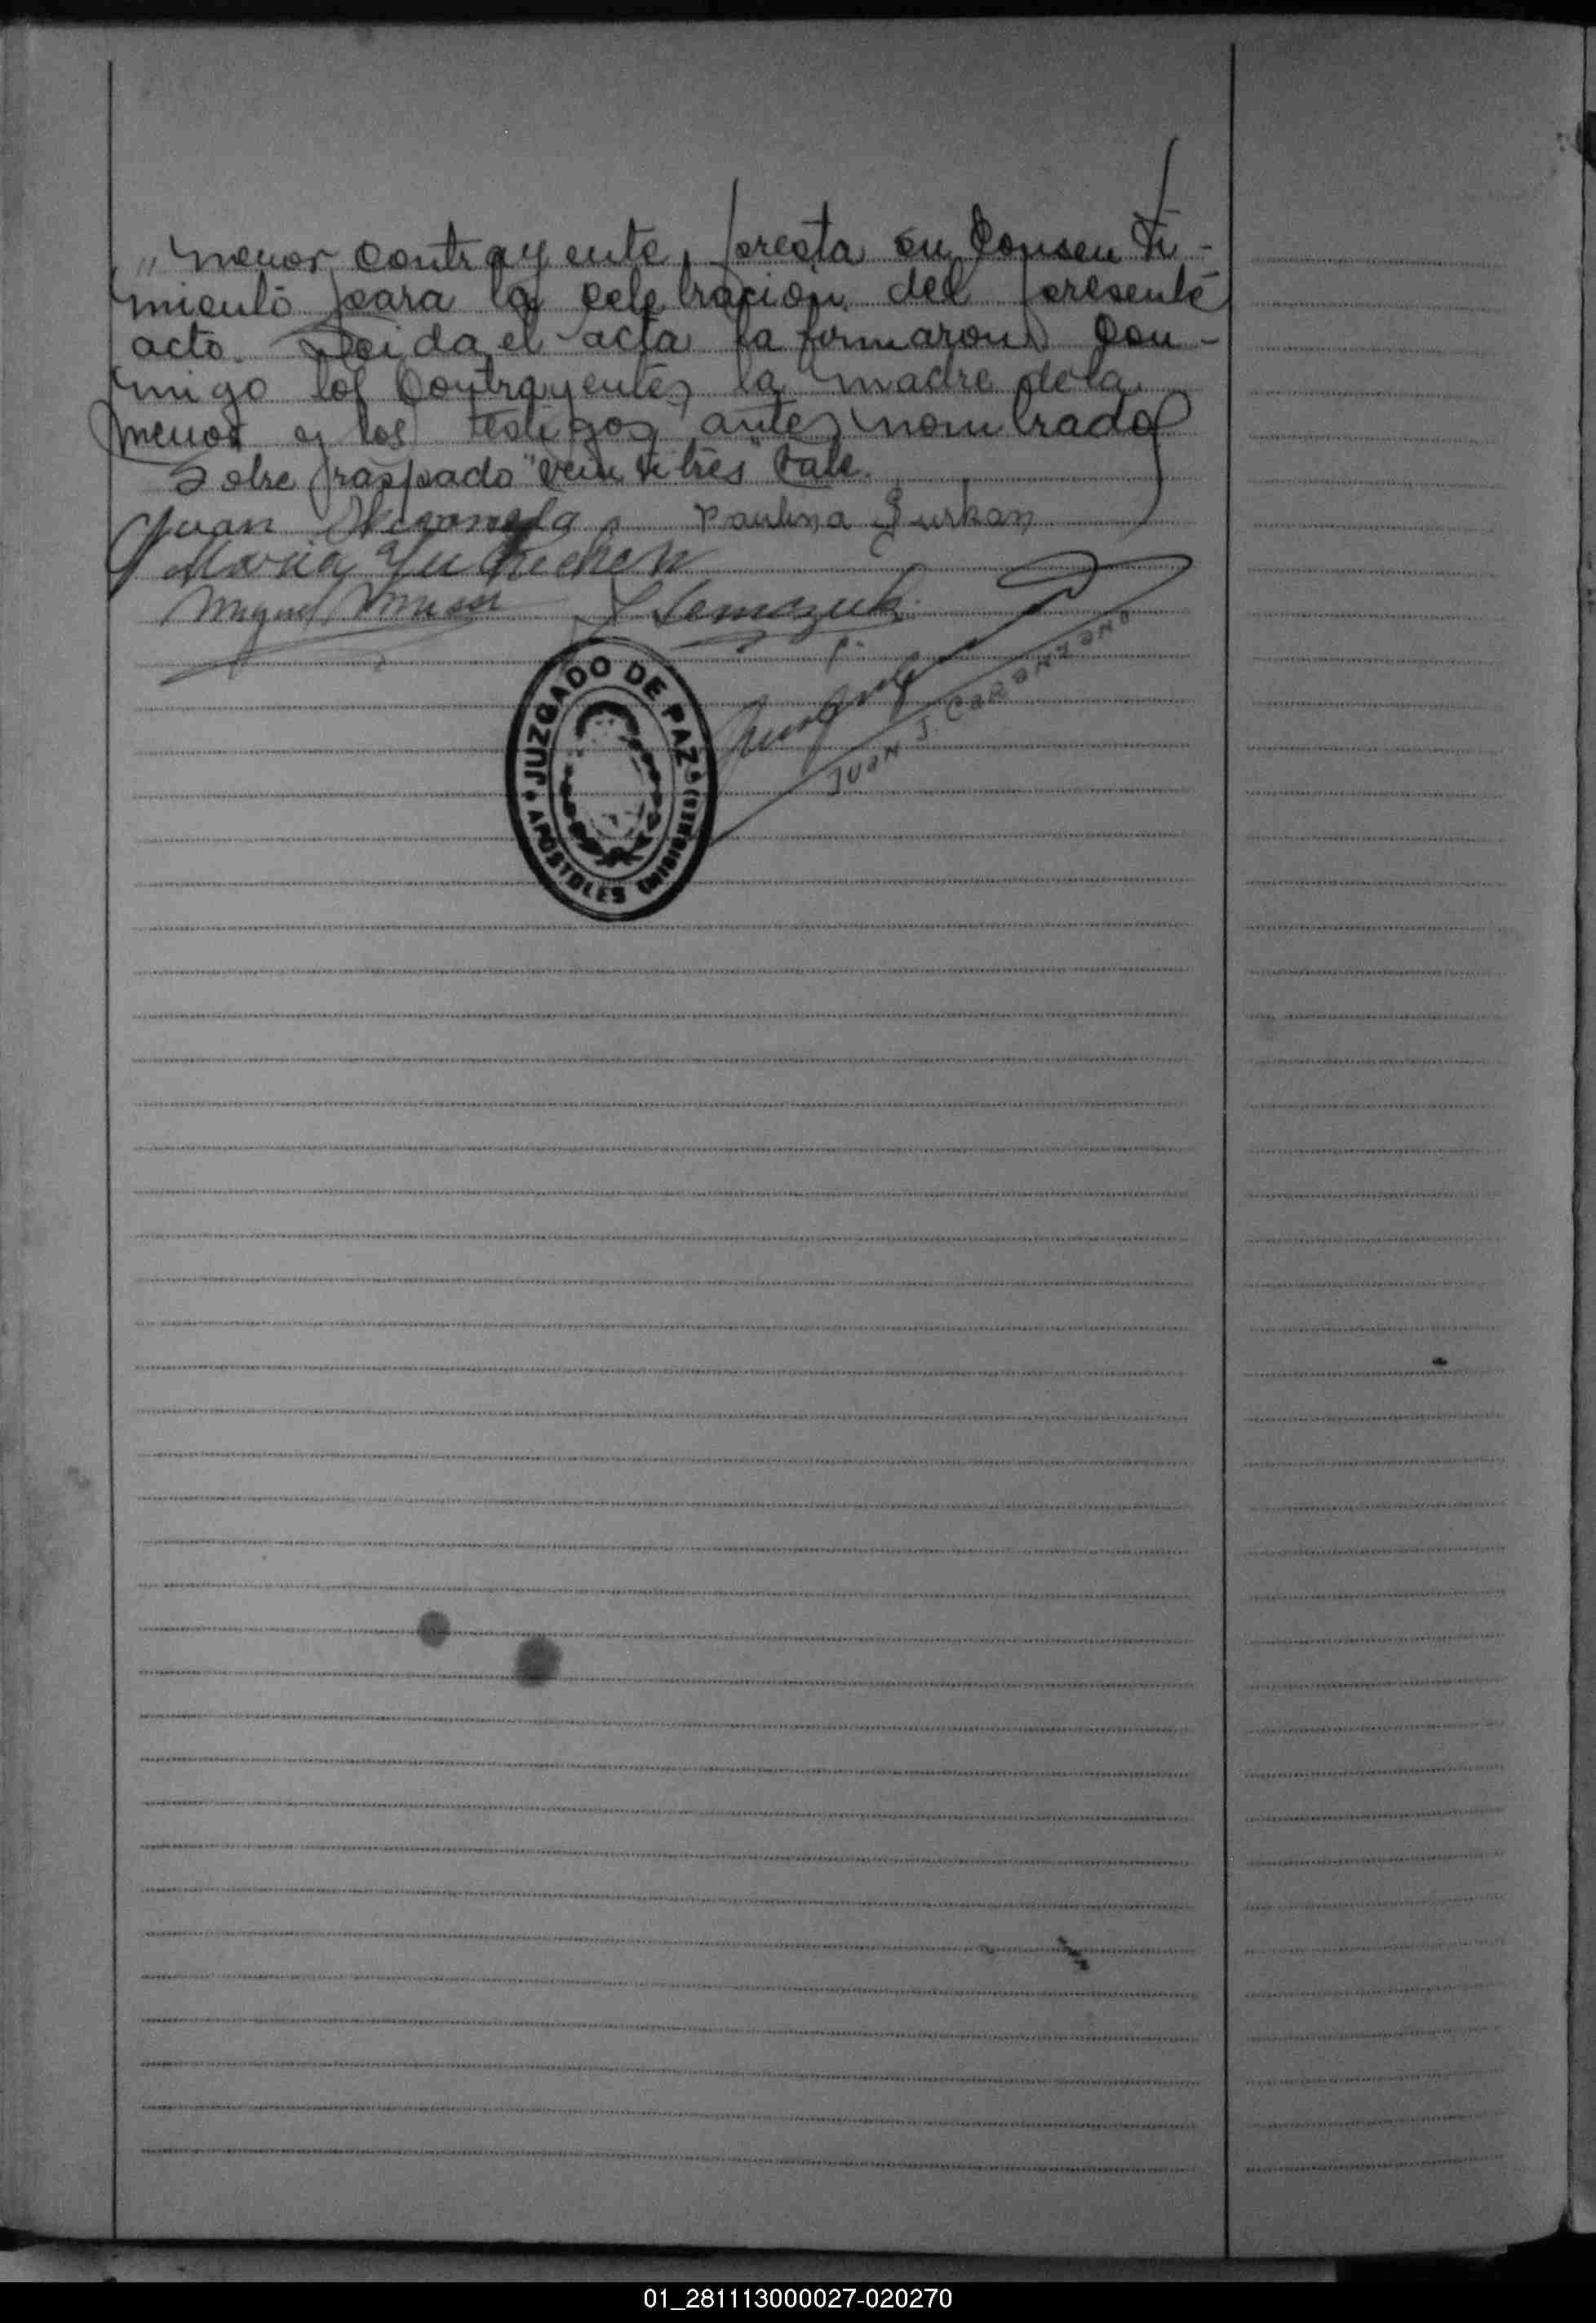 „ menor contrayente, presta su consenti-
miento para la celebracion del presente
acto. Leida el acta la firmaron con-
migo los contrayentes, la madre de la
menor y los testigos antes nombrados
Sobre raspado "veintitres" Vale.
Juan Paulina Gurkan
Maria
Miguel
JUAN J.
JUZGADO DE PAZ
APOSTOLES (MISIONES)
01_281113000027-020270